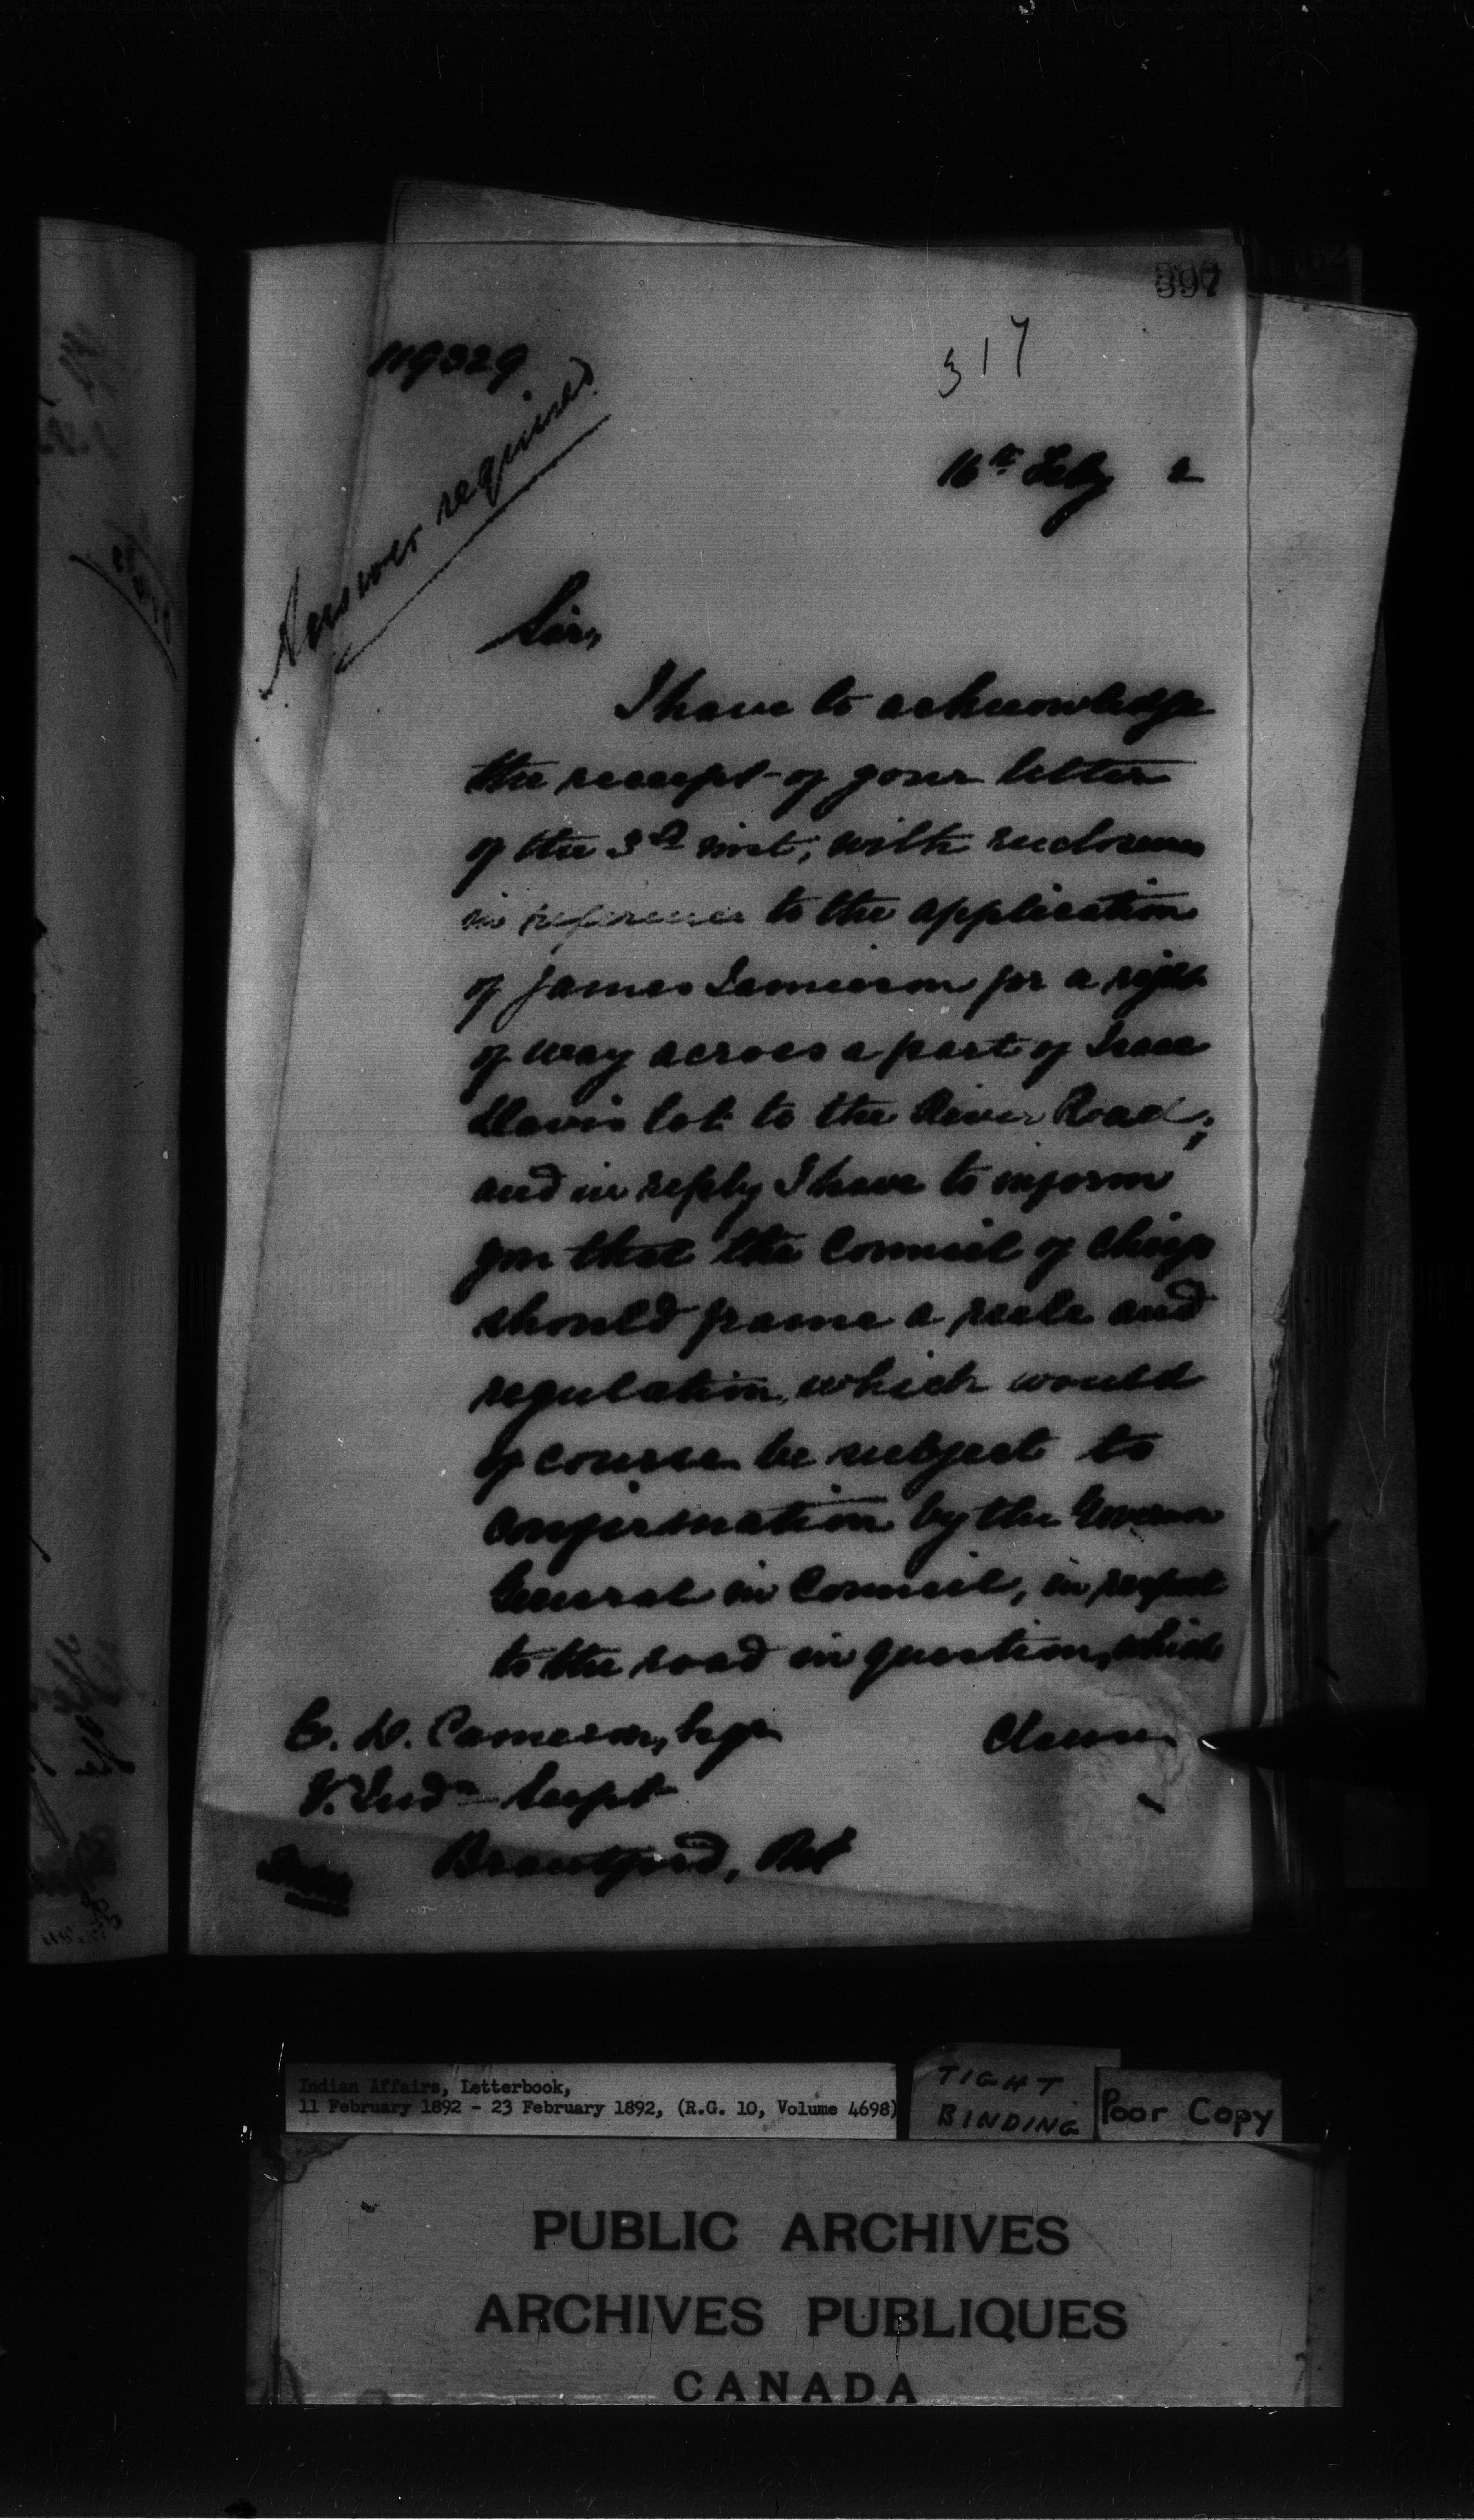 397
119329
317
Answer required
16th Feby 2
Sir,
I have to acknowledge
the receipt of your letter
of the 3rd inst, with enclosures
in reference to the application
of James Jamieson for a right
of way across a part of Isaac
Davis lot to the River Road,
and in reply I have to inform
you that the Council of Chiefs
should frame a rule and
regulation, which would
of course be subject to
confirmation by the Governor
General in Council, in respect
to the road in question, which
E. D. Cameron, Esqr
V. Indn Supt
Brantford, Ont
Indian Affairs, Letterbook,
11 February 1892 - 23 February 1892, (R.G. 10, Volume 4698)
TIGHT
BINDING
Poor Copy
PUBLIC ARCHIVES
ARCHIVES PUBLIQUES
CANADA